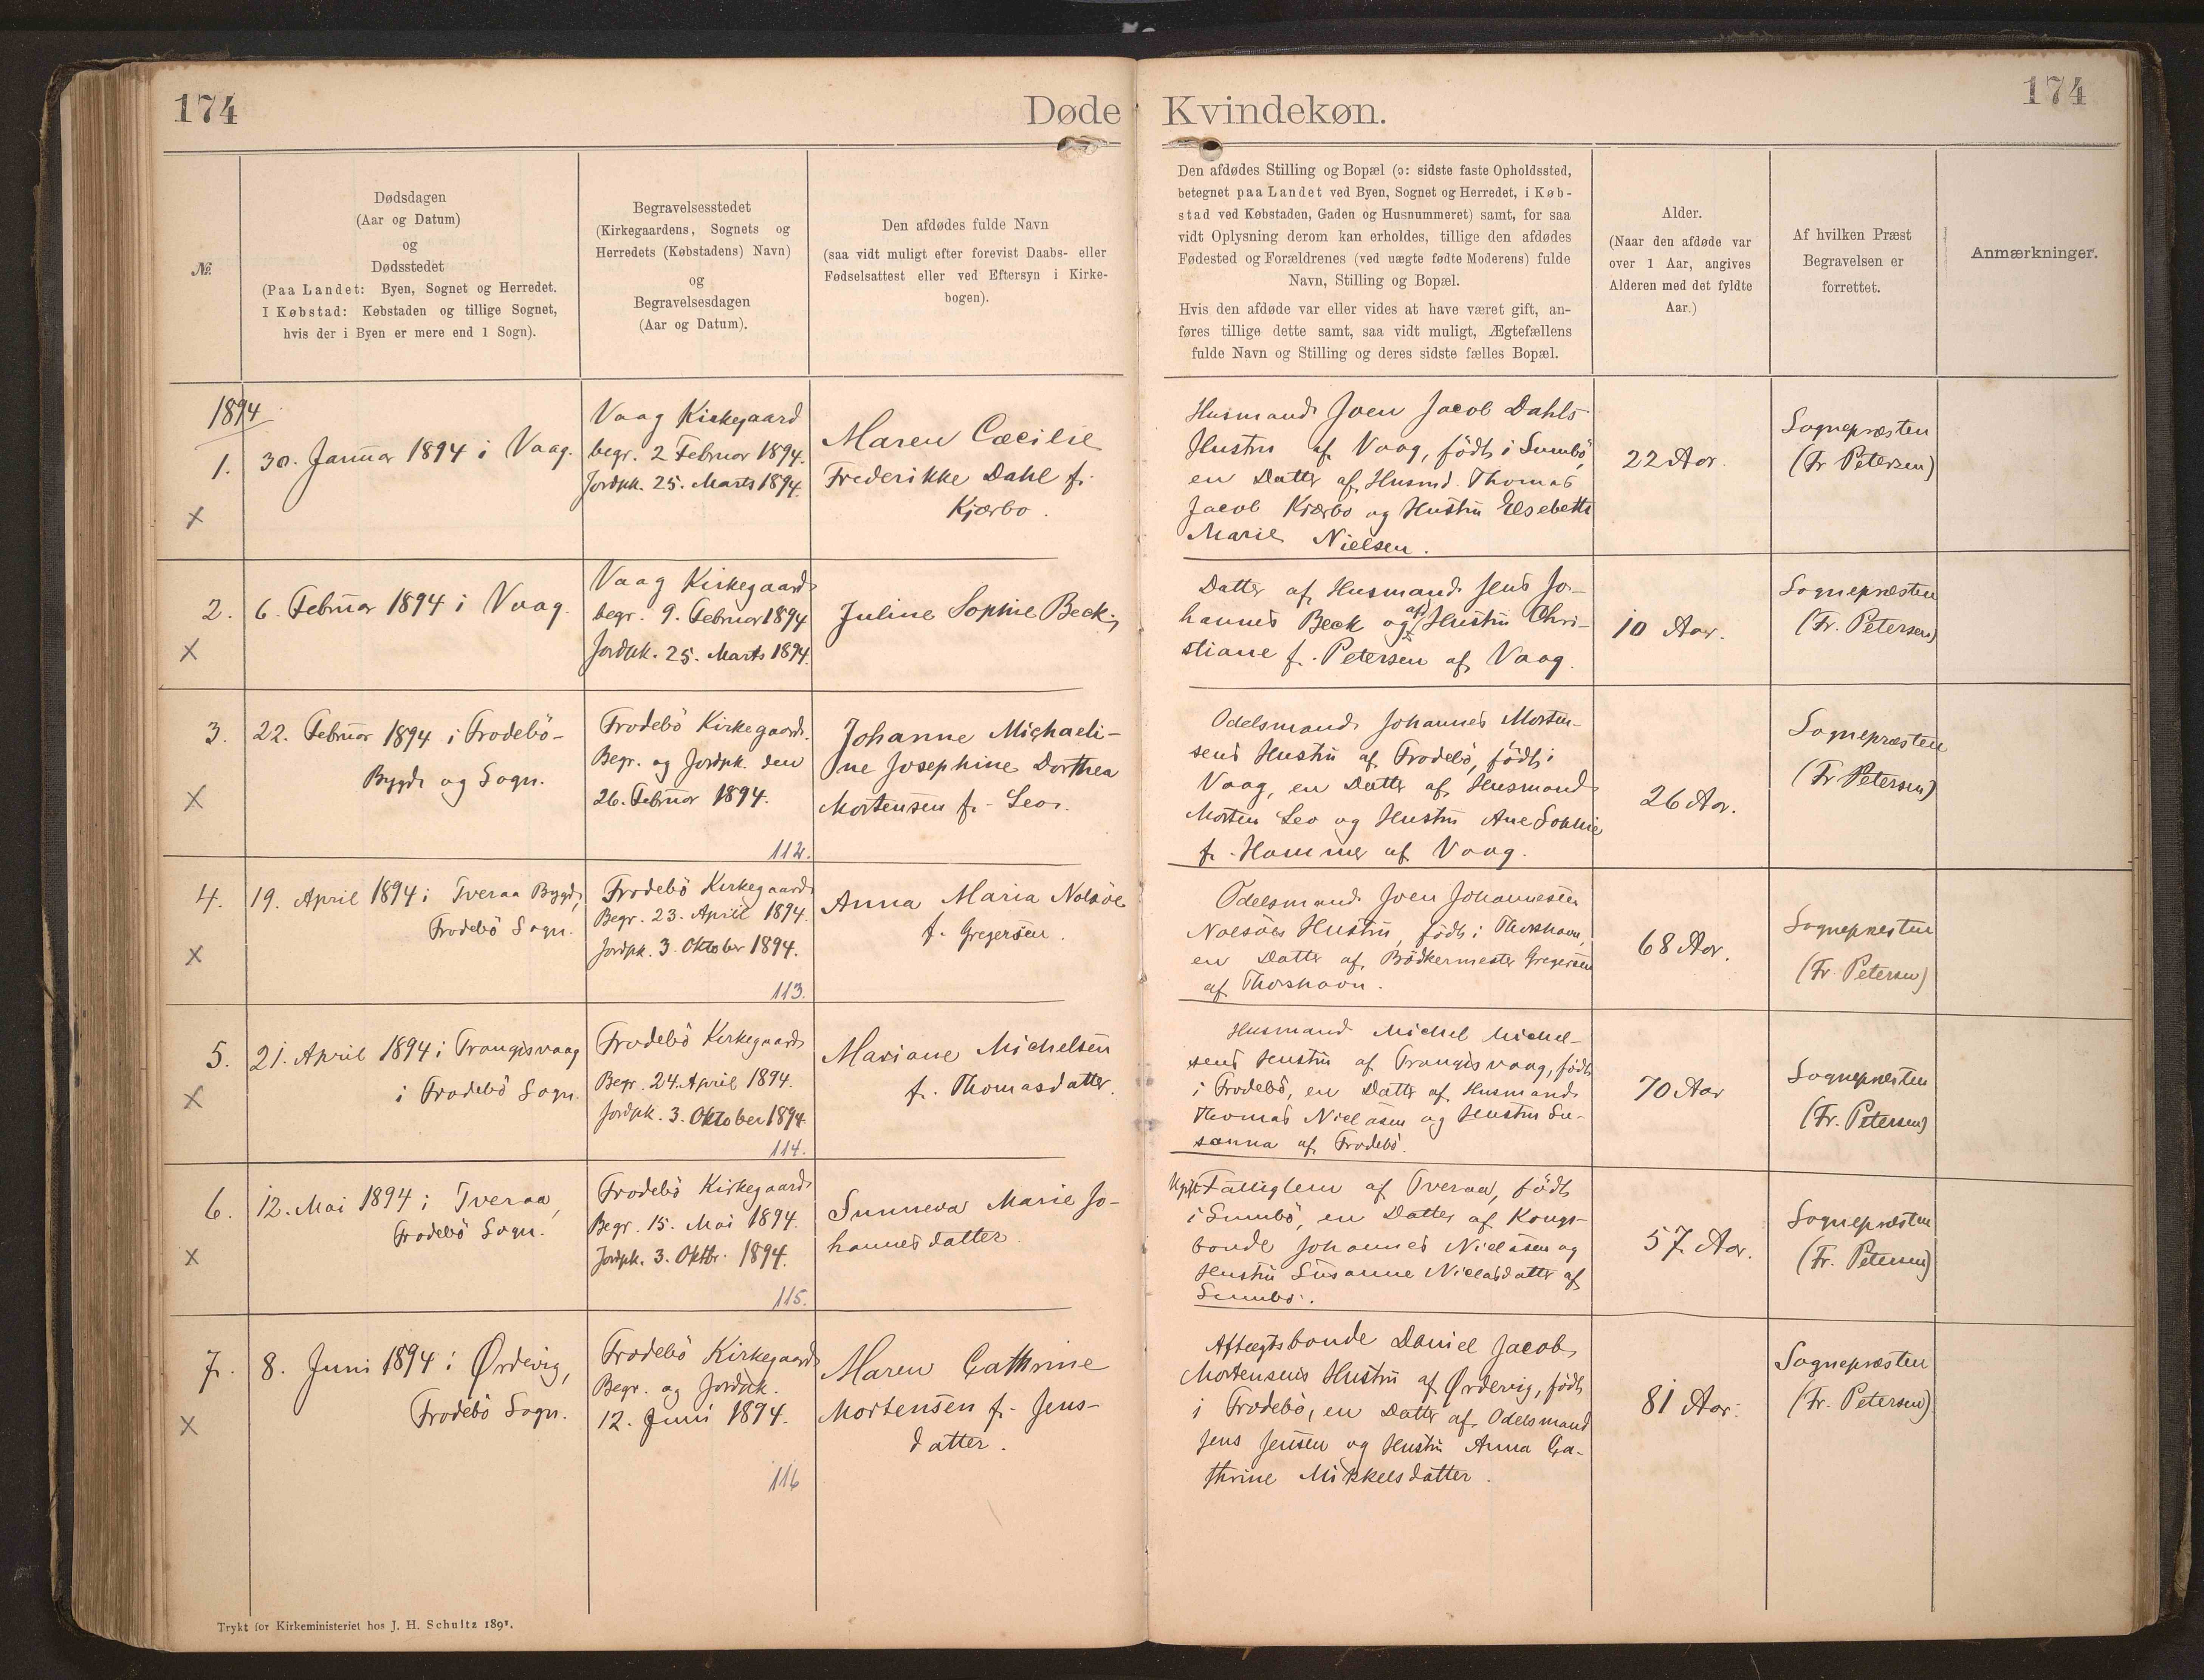 174
Døde
Kvindekøn.
174
№
Dødsdagen
(Aar og Datum)
og
Dødsstedet
(Paa Landet: Byen, Sognet og Herredet.
I Købstad: Købstaden og tillige Sognet,
hvis der i Byen er mere end 1 Sogn).
Begravelsesstedet
(Kirkegaardens, Sognets og
Herredets (Købstadens) Navn)
og
Begravelsesdagen
(Aar og Datum).
Den afdødes fulde Navn
(saa vidt muligt efter forevist Daabs- eller
Fødselsattest eller ved Eftersyn i Kirke-
bogen).
Den afdødes Stilling og Bopæl (ɔ: sidste faste Opholdssted,
betegnet paa Landet ved Byen, Sognet og Herredet, i Køb-
stad ved Købstaden, Gaden og Husnummeret) samt, for saa
vidt Oplysning derom kan erholdes, tillige den afdødes
Fødested og Forældrenes (ved uægte fødte Moderens) fulde
Navn, Stilling og Bopæl.
Hvis den afdøde var eller vides at have været gift, an-
føres tillige dette samt, saa vidt muligt, Ægtefællens
fulde Navn og Stilling og deres sidste fælles Bopæl.
Alder.
(Naar den afdøde var
over 1 Aar, angives
Alderen med det fyldte
Aar.)
Af hvilken Præst
Begravelsen er
forrettet.
Anmærkninger.
1894
1.
x
30. Januar 1894 i Vaag.
Vaag Kirkegaard
begr. 2 Februar 1894.
Jordpk. 25. Marts 1894.
Maren Cæcilie
Frederikke Dahl f.
Kjærbo.
Husmand Joen Jacob Dahls
Hustru af Vaag, født i Sumbö,
en Datter af Husmd. Thomas
Jacob Kjærbo og Hustru Elsebeth
Marie Nielsen.
22 Aar.
Sognepræsten
(Fr Petersen)
2.
x
6. Februar 1894 i Vaag.
Vaag Kirkegaard
begr. 9. Februar 1894
Jordpk. 25. Marts 1894.
Juline Sophie Beck,
Datter af Husmand Jens Jo-
hannes Beck og af Hustru Chri-
stiane f. Petersen af Vaag.
10 Aar.
Sognepræsten
(Fr. Petersen)
3.
x
22. Februar 1894 i Frodebö-
Bygd og Sogn.
Frodebö Kirkegaard.
Begr. og Jordpk. den
26. Februar 1894.
112.
Johanne Michaeli-
ne Josephine Dorthea
Mortensen f. Leo.
Odelsmand Johannes Morten-
sens Hustru af Frodebö, født i
Vaag, en Datter af Husmand
Morten Leo og Hustru Ane Sophie
f. Hammer af Vaag.
26 Aar.
Sognepræsten
(Fr Petersen)
4.
x
19. April 1894 i Tveraa Bygd,
Frodebö Sogn.
Frodebö Kirkegaard
Begr. 23. April 1894.
Jordpk. 3. Oktober 1894.
113.
Anna Maria Nolsöe
f. Gregersen.
Odelsmand Joen Johannesen
Nolsöes Hustru, født i Thorshavn,
en Datter af Bödkermester Gregersen
af Thorshavn.
68 Aar.
Sognepræsten
(Fr. Petersen)
5.
x
21. April 1894 i Trangisvaag
i Frodebö Sogn.
Frodebö Kirkegaard
Begr. 24. April 1894.
Jordpk. 3. Oktober 1894
114.
Mariane Michelsen
f. Thomasdatter.
Husmand Michel Michel-
sens Hustru af Trangisvaag, født
i Frodebö, en Datter af Husmand
Thomas Nielsen og Hustru Su-
sanna af Frodebö.
70 Aar
Sognepræsten
(Fr. Petersen)
6.
x
12. Mai 1894 i Tveraa,
Frodebö Sogn.
Frodebö Kirkegaard
Begr. 15. Mai 1894.
Jordpk. 3. Oktbr. 1894.
115.
Sunneva Marie Jo-
hannesdatter.
Ugift Fattiglem af Tveraa, født
i Sumbö, en Datter af Kongs-
bonde Johannes Nielsen og
Hustru Susanne Nielsdatter af
Sumbö.
57 Aar.
Sognepræsten
(Fr. Petersen)
7.
x
8. Juni 1894 i Ørdevig,
Frodebö Sogn.
Frodebö Kirkegaard
Begr. og Jordpk.
12. Juni 1894.
116
Maren Cathrine
Mortensen f. Jens-
datter.
Aftægtsbonde Daniel Jacob
Mortensens Hustru af Ørdevig, født
i Frodebö, en Datter af Odelsmand
Jens Jensen og Hustru Anna Ca-
thrine Mikkelsdatter.
81 Aar.
Sognepræsten
(Fr. Petersen)
Trykt for Kirkeministeriet hos J. H. Schultz 1891.